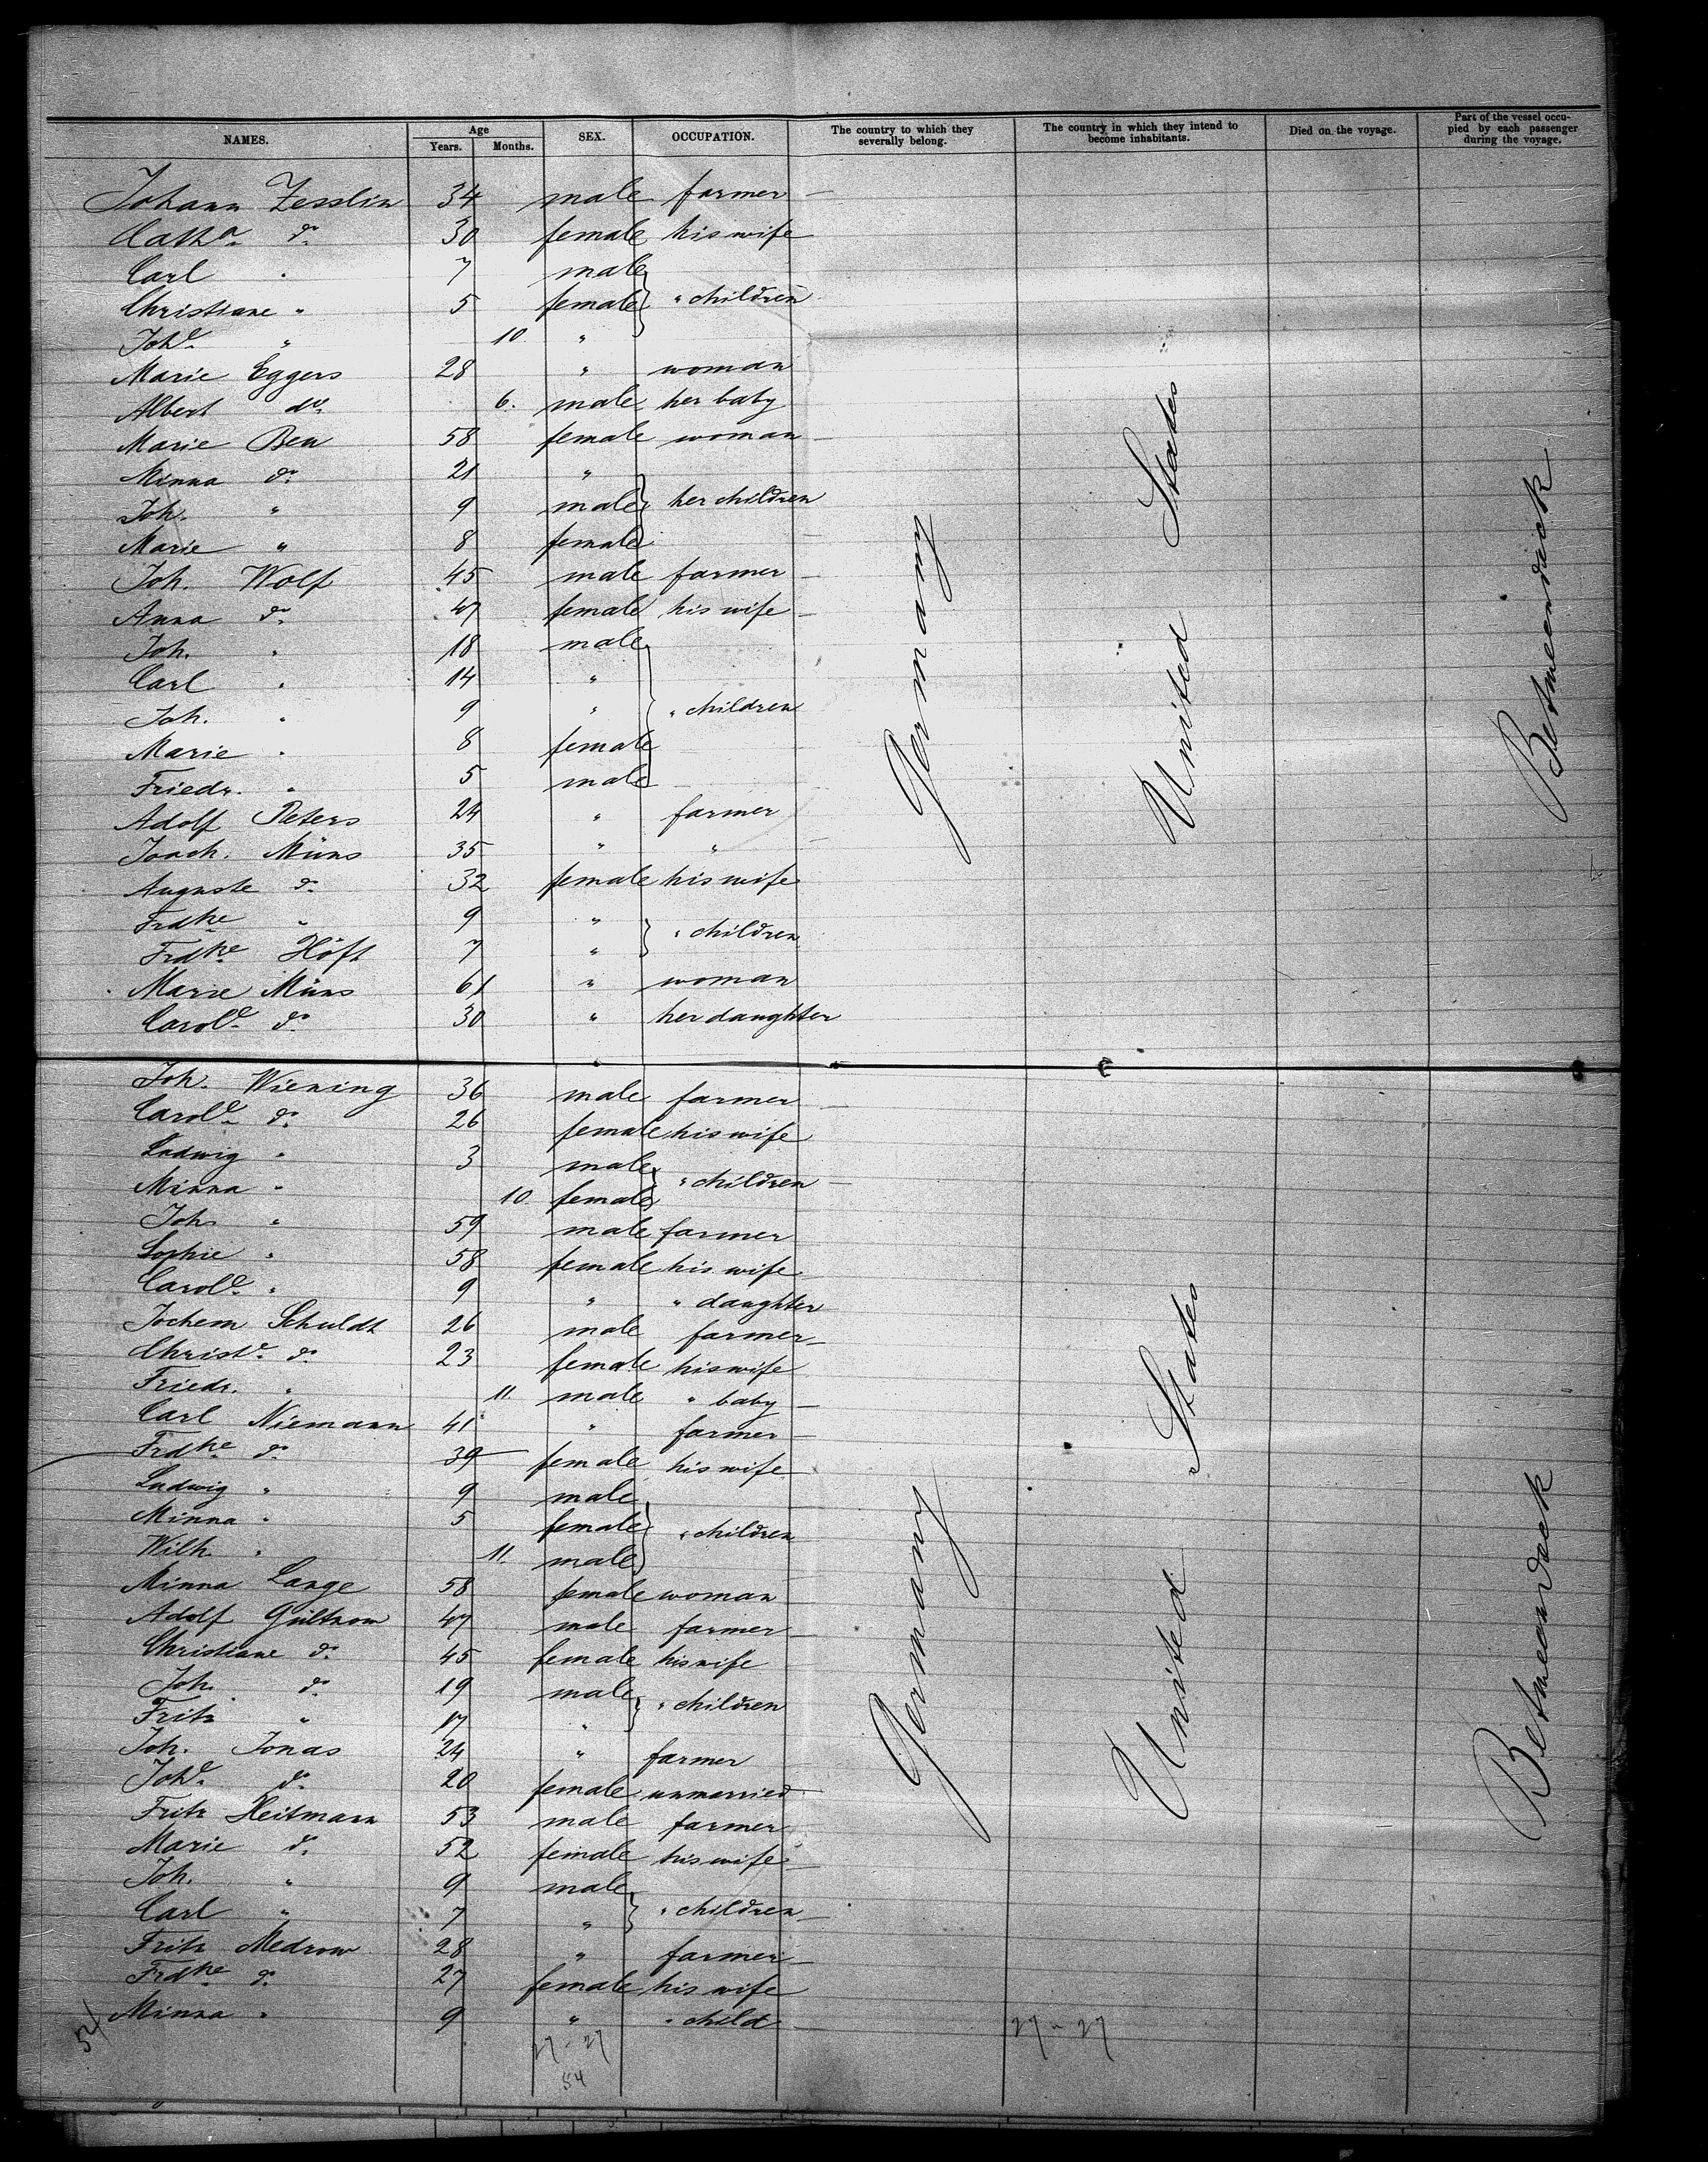 NAMES. Age Years. Months. SEX. OCCUPATION. The country to which they severally belong. The country in which they intend to become inhabitants. Died on the voyage. Part of the vessel occupied by each passenger during the voyage.
Johann Zesslin 34 male farmer
Catha do 30 female his wife
Carl " 7 male
Christiane " 5 female " children
Johe " 10 "
Marie Eggers 28 " woman
Albert do 6. male her baby
Marie Beu 58 female woman
Minna do 21 "
Joh. " 9 male her children
Marie " 8 female
Joh. Wolf 45 male farmer
Anna do 47 female his wife
Joh. " 18 male
Carl " 14 "
Joh. " 9 " " children
Marie " 8 female
Friedr. " 5 male
Adolf Peters 24 " farmer
Joach. Müns 35 " "
Auguste do 32 female his wife
Frdke " 9 " " children
Frdke Höft 7 "
Marie Müns 61 " woman
Carole do 30 " her daughter
Germany United States Betweendeck
Joh. Wiening 36 male farmer
Carole do 26 female his wife
Ludwig " 3 male " children
Minna " 10 female
Joh. " 59 male farmer
Sophie " 58 female his wife
Carole " 9 " " daughter
Jochem Schuldt 26 male farmer
Christe do 23 female his wife
Friedr. " 11. male " baby
Carl Niemann 41 " farmer
Frdke do 39 female his wife
Ludwig " 9 male
Minna " 5 female " children
Wilh. " 11. male
Minna Lange 58 female woman
Adolf Gültzow 47 male farmer
Christiane do 45 female his wife
Joh. do 19 male " children
Fritz " 17 "
Joh. Jonas 24 " farmer
Johe do 20 female unmarried
Fritz Heitmann 53 male farmer
Marie do 52 female his wife
Joh. " 9 male " children
Carl " 7 "
Fritz Medrow 28 " farmer
Frdke do 27 female his wife
Minna " 9 " " child
Germany United States Betweendeck
54 27-27 27-27
54